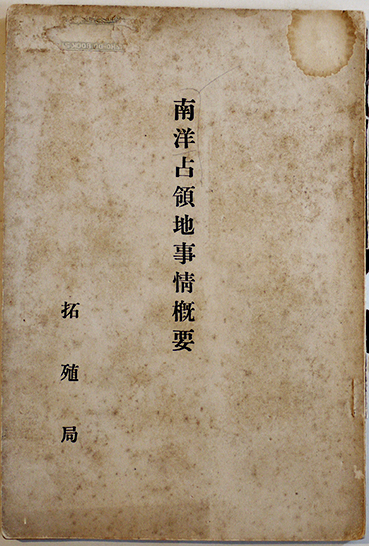 南洋占領地事情概要
拓殖局